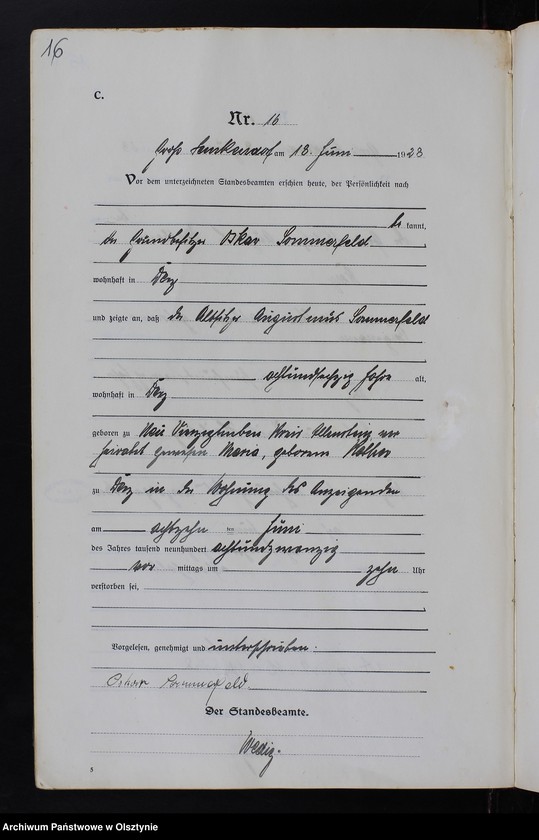 16
C.
Nr. 16
Groß Lemkendorf am 18. Juni 1928
Vor dem unterzeichneten Standesbeamten erschien heute, der Persönlichkeit nach
be kannt,
der Grundbesitzer Oskar Sommerfeld
wohnhaft in Derz
und zeigte an, daß der Altsitzer Augustinus Sommerfeld
achtundsechzig Jahre alt,
wohnhaft in Derz
geboren zu Neu Vierzighuben Kreis Allenstein ver
heiratet gewesen Maria, geborene
zu Derz in der Wohnung des Anzeigenden
am achtzehn ten Juni
des Jahres tausend neunhundert achtundzwanzig
vor mittags um zehn Uhr
verstorben sei,
Vorgelesen, genehmigt und unterschrieben.
Oskar Sommerfeld
Der Standesbeamte.
Wedig.
5
Archiwum Państwowe w Olsztynie